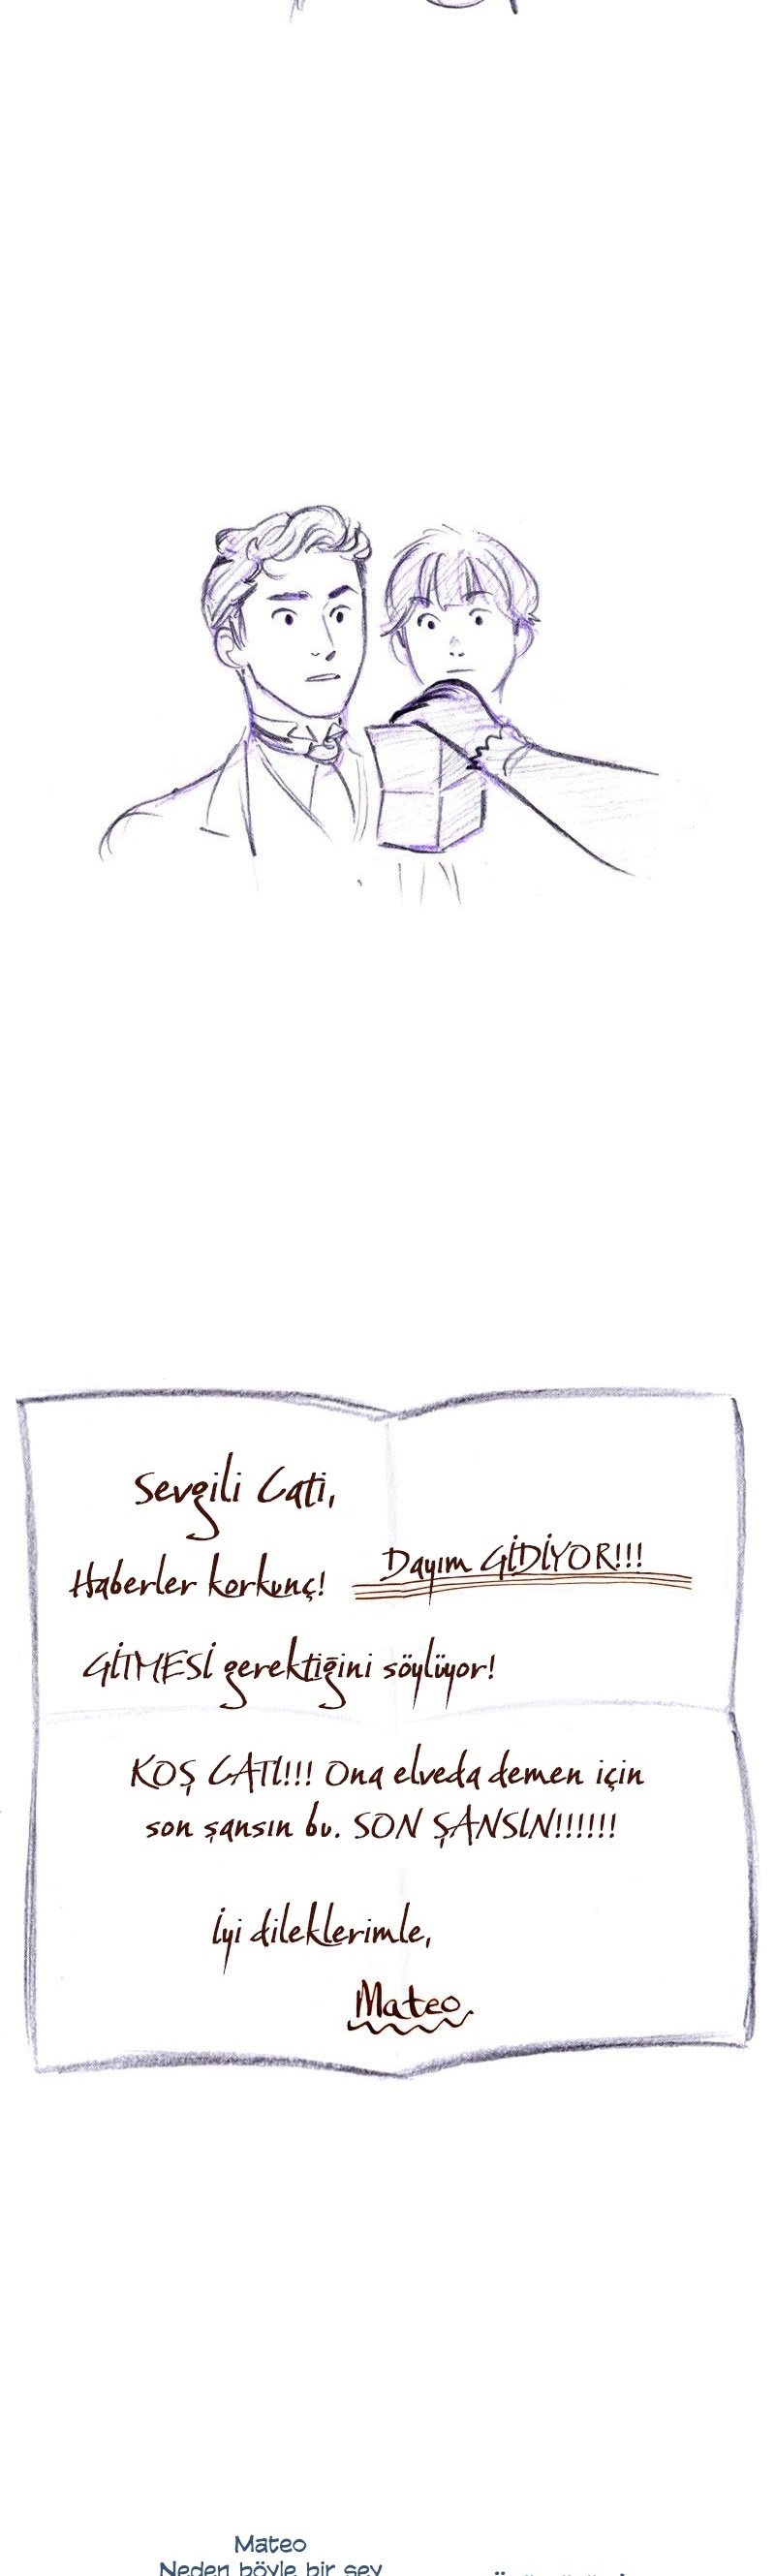 Sevgili Cati,
Haberler korkunç! Dayım GİDİYOR!!!
GİTMESİ gerektiğini söylüyor!
KOŞ CATI!!! Ona elveda demen için
son şansın bu. SON ŞANSIN!!!!!!
İyi dileklerimle,
Mateo
Mateo
Neden böyle bir şey